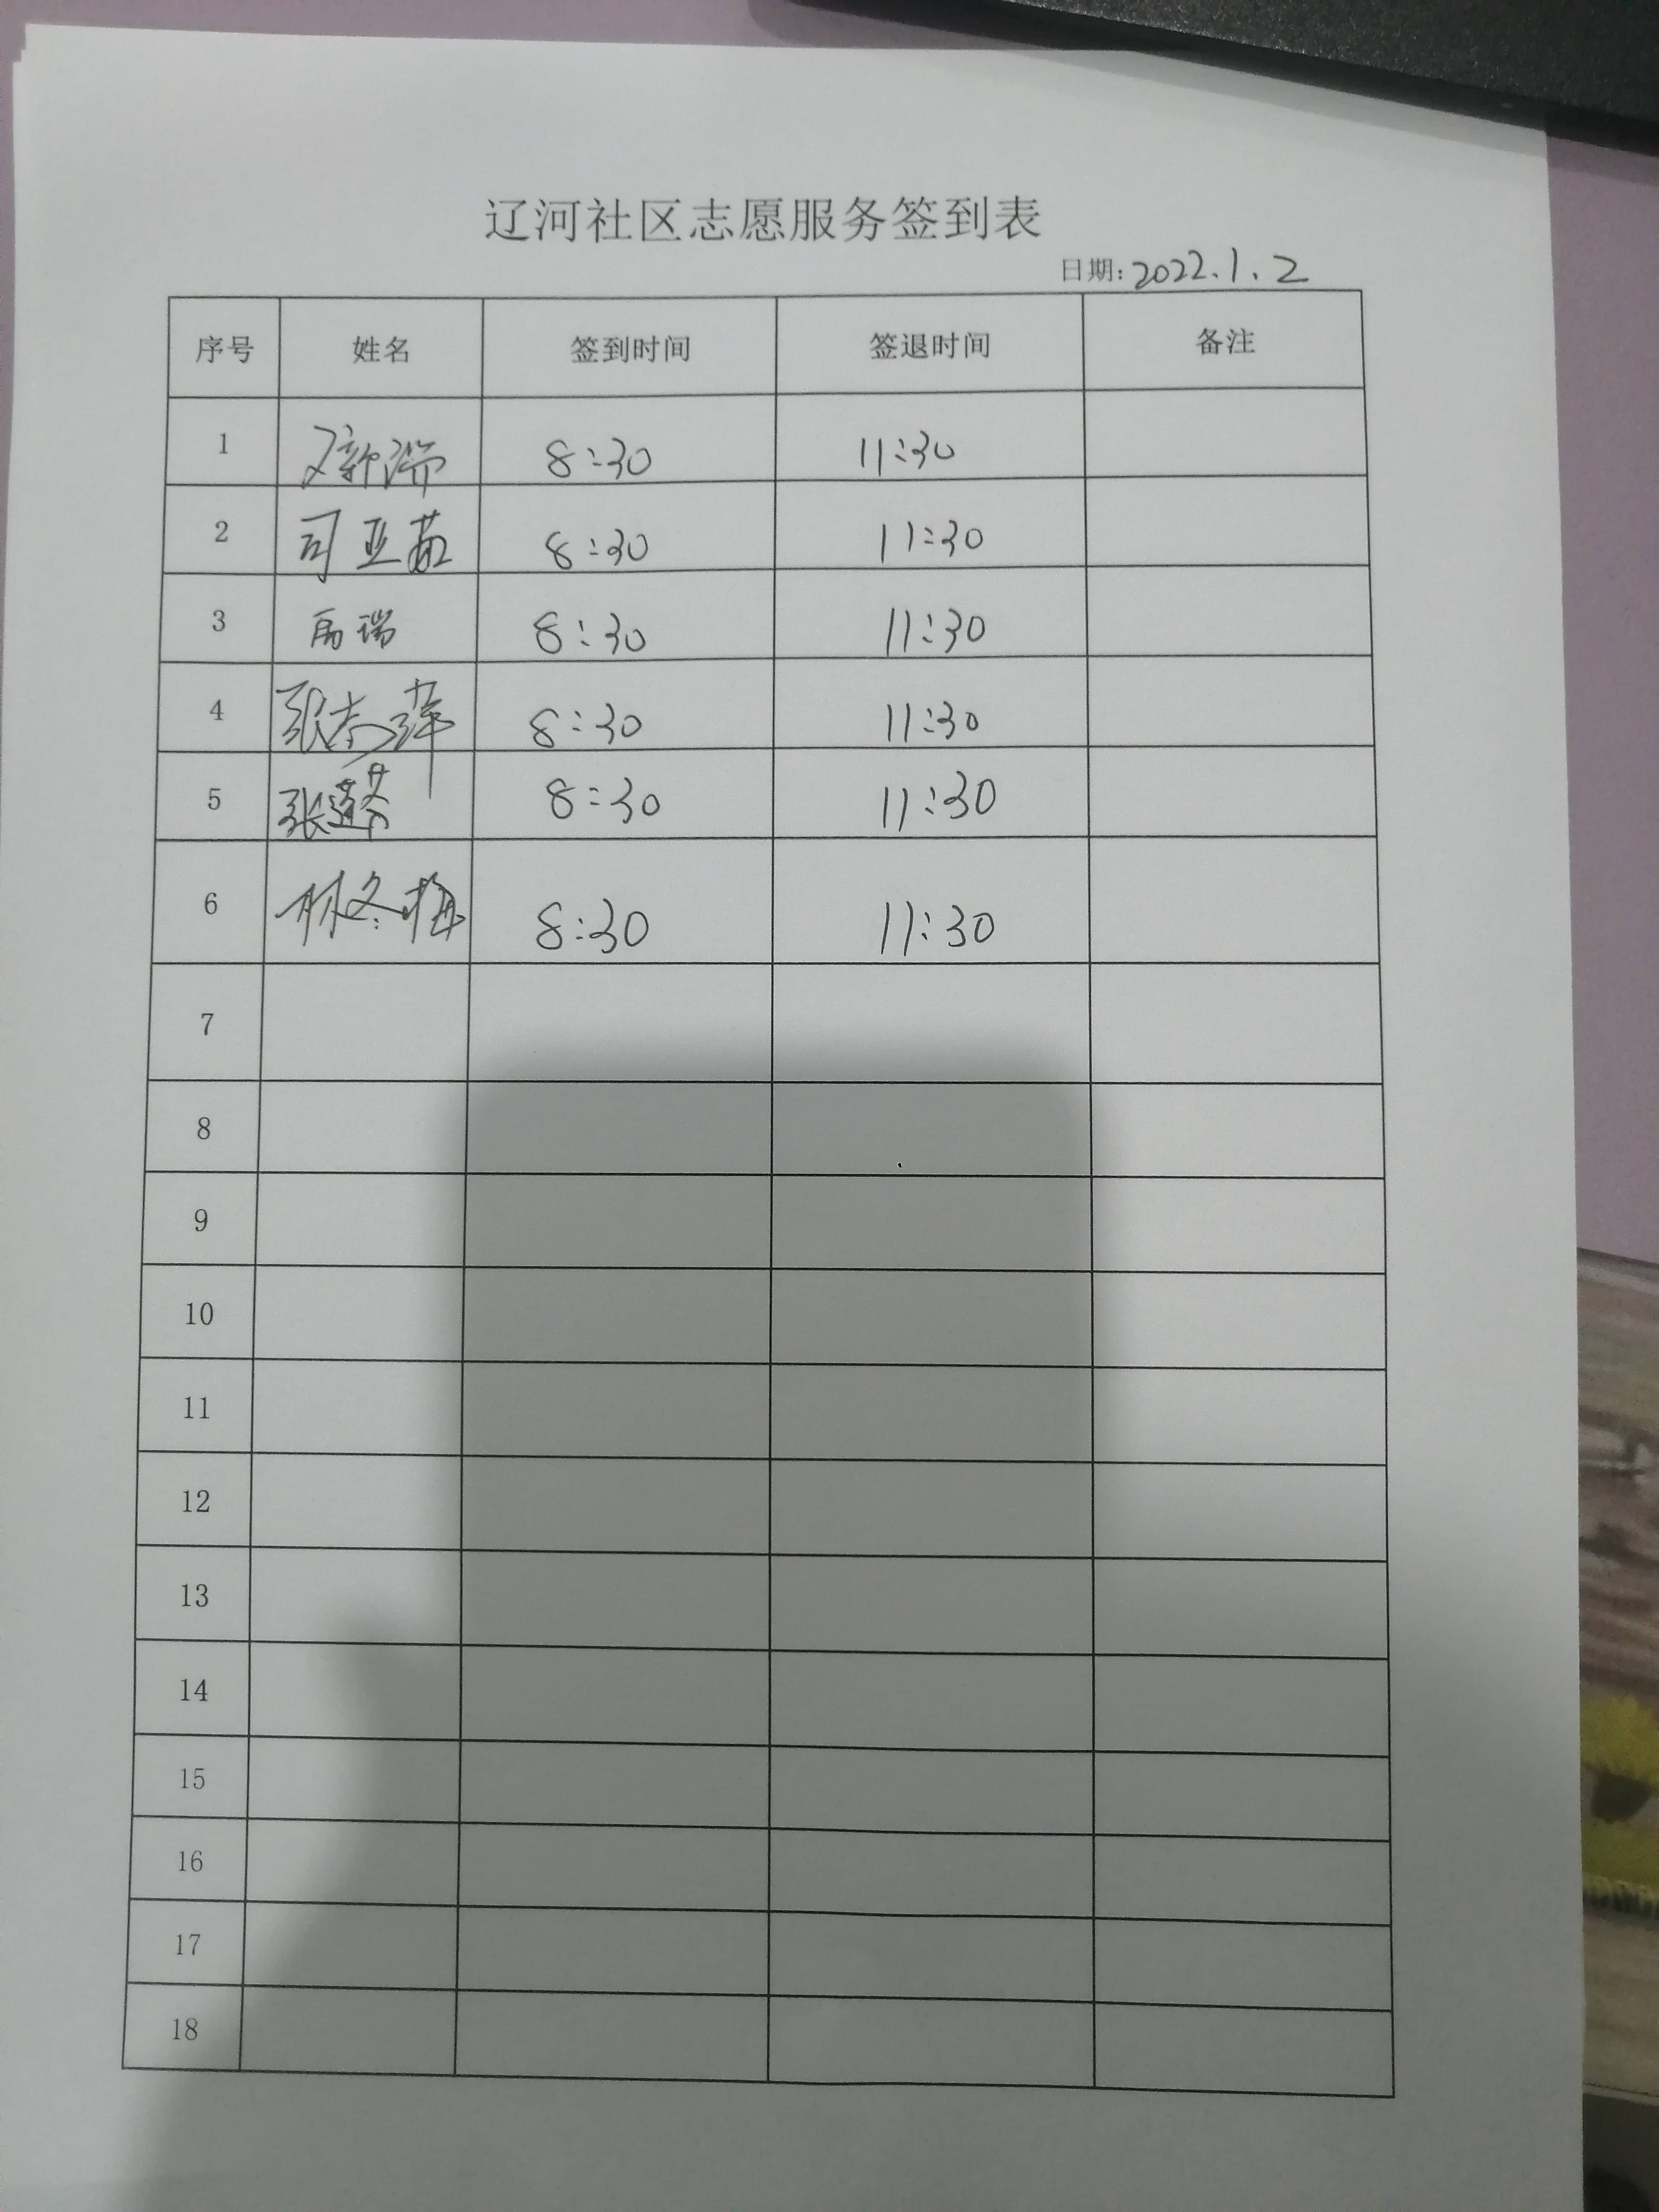 辽河社区志愿服务签到表
日期:2022.1.2
序号 姓名 签到时间 签退时间 备注
1 8:30 11:30
2 司亚茹 8:30 11:30
3 瑞 8:30 11:30
4 张 萍 8:30 11:30
5 张 8:30 11:30
6 林冬梅 8:30 11:30
7
8
9
10
11
12
13
14
15
16
17
18